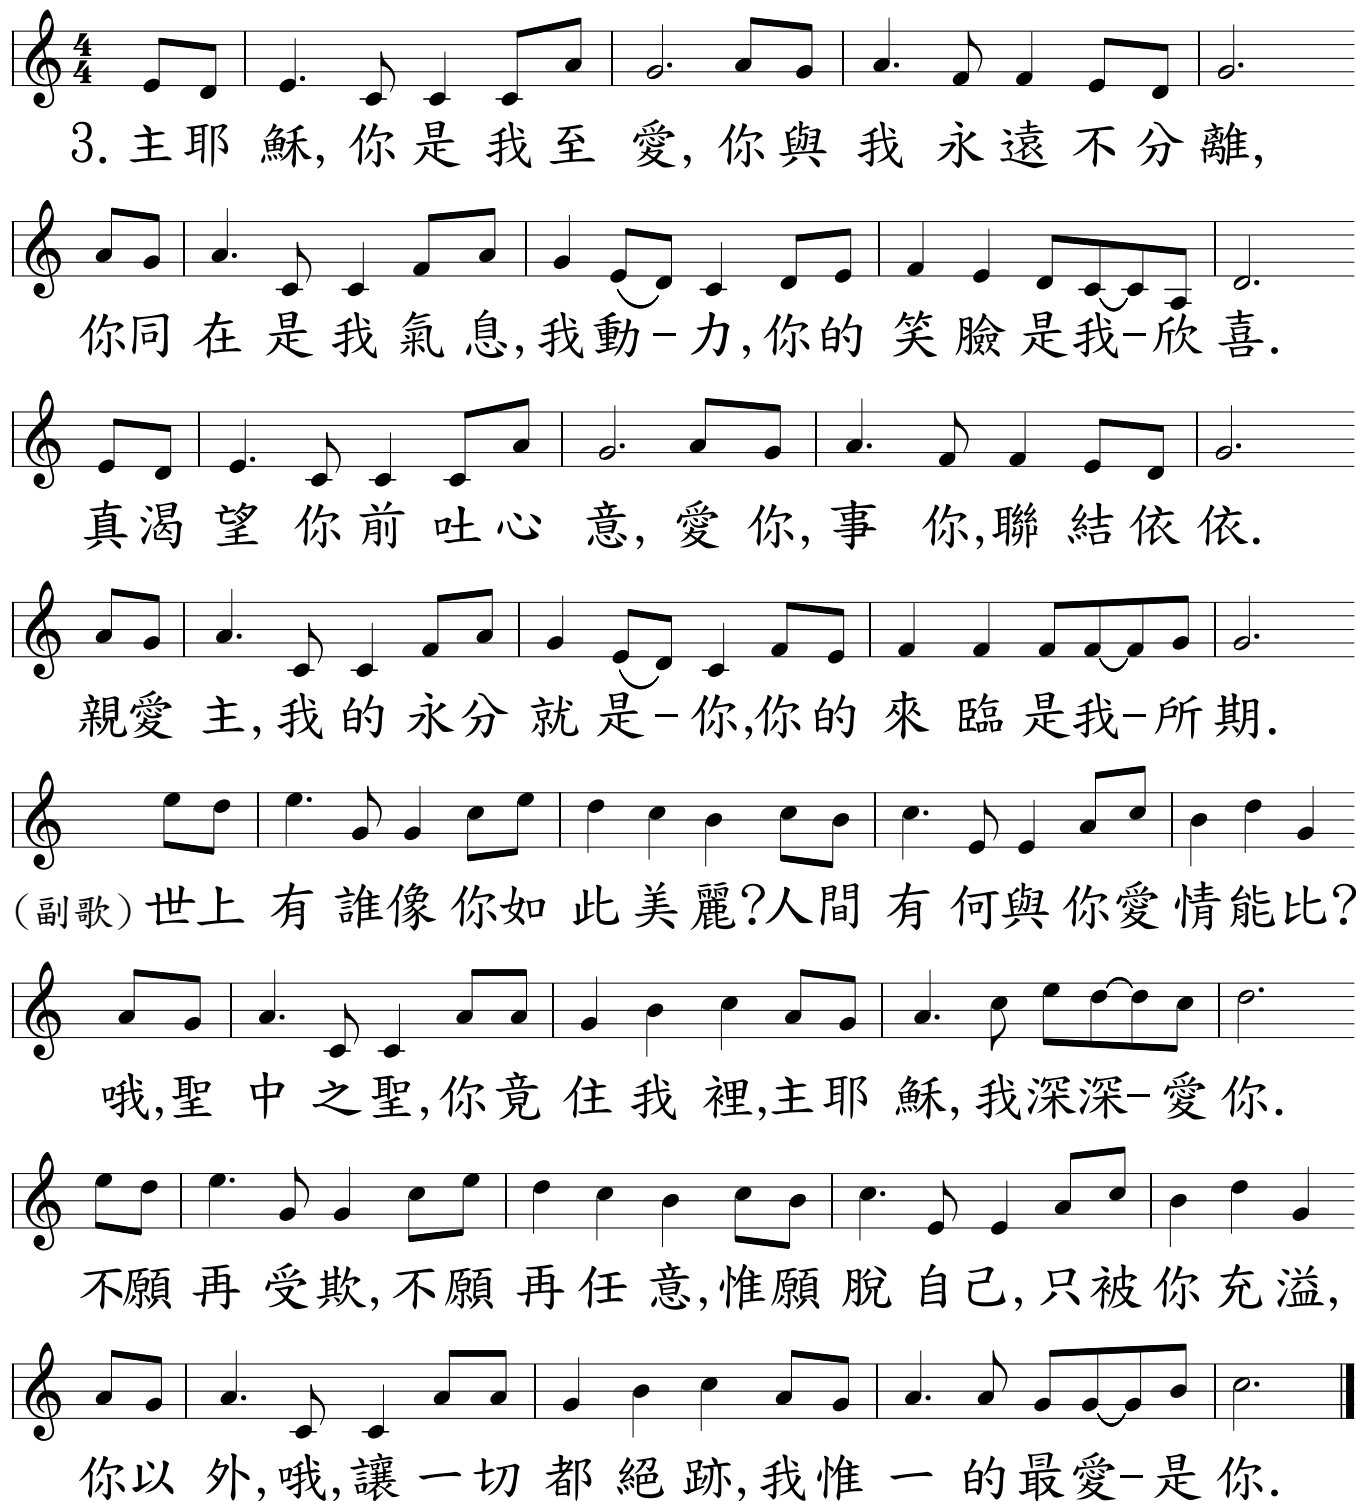 4
4
3. 主耶 穌, 你是 我至 愛, 你與 我 永遠 不分離,
你同 在 是 我 氣 息, 我動–力, 你的 笑 臉 是我–欣 喜.
真渴 望 你前 吐心 意, 愛 你, 事 你, 聯 結依 依.
親愛 主, 我 的 永分 就 是–你, 你的 來 臨 是我–所 期.
(副歌) 世上 有 誰像 你如 此 美 麗? 人間 有 何與 你愛 情能比?
哦, 聖 中 之聖, 你竟 住 我 裡, 主耶 穌, 我深深–愛 你.
不願 再 受欺, 不願 再 任 意, 惟願 脫 自己, 只被 你 充 溢,
你以 外, 哦, 讓 一切 都 絕 跡, 我惟 一 的最愛–是 你.